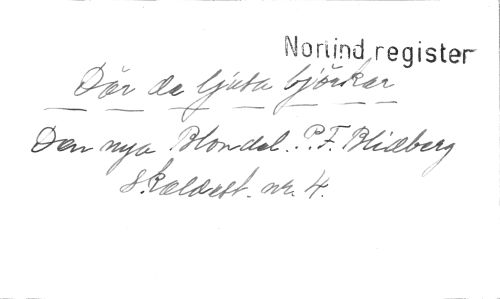 Norlind register
Där de ljusa björkar
Den nya Blondel. P.F. Blidberg
Skaldest. nr. 4.